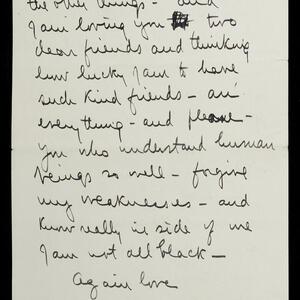 the other things - and
I am loving you two
dear friends and thinking
how lucky I am to have
such kind friends - an'
everything - and please -
you who understand human
beings so well - forgive
my weaknesses - and
know really in side of me
I am not all black -
Again love